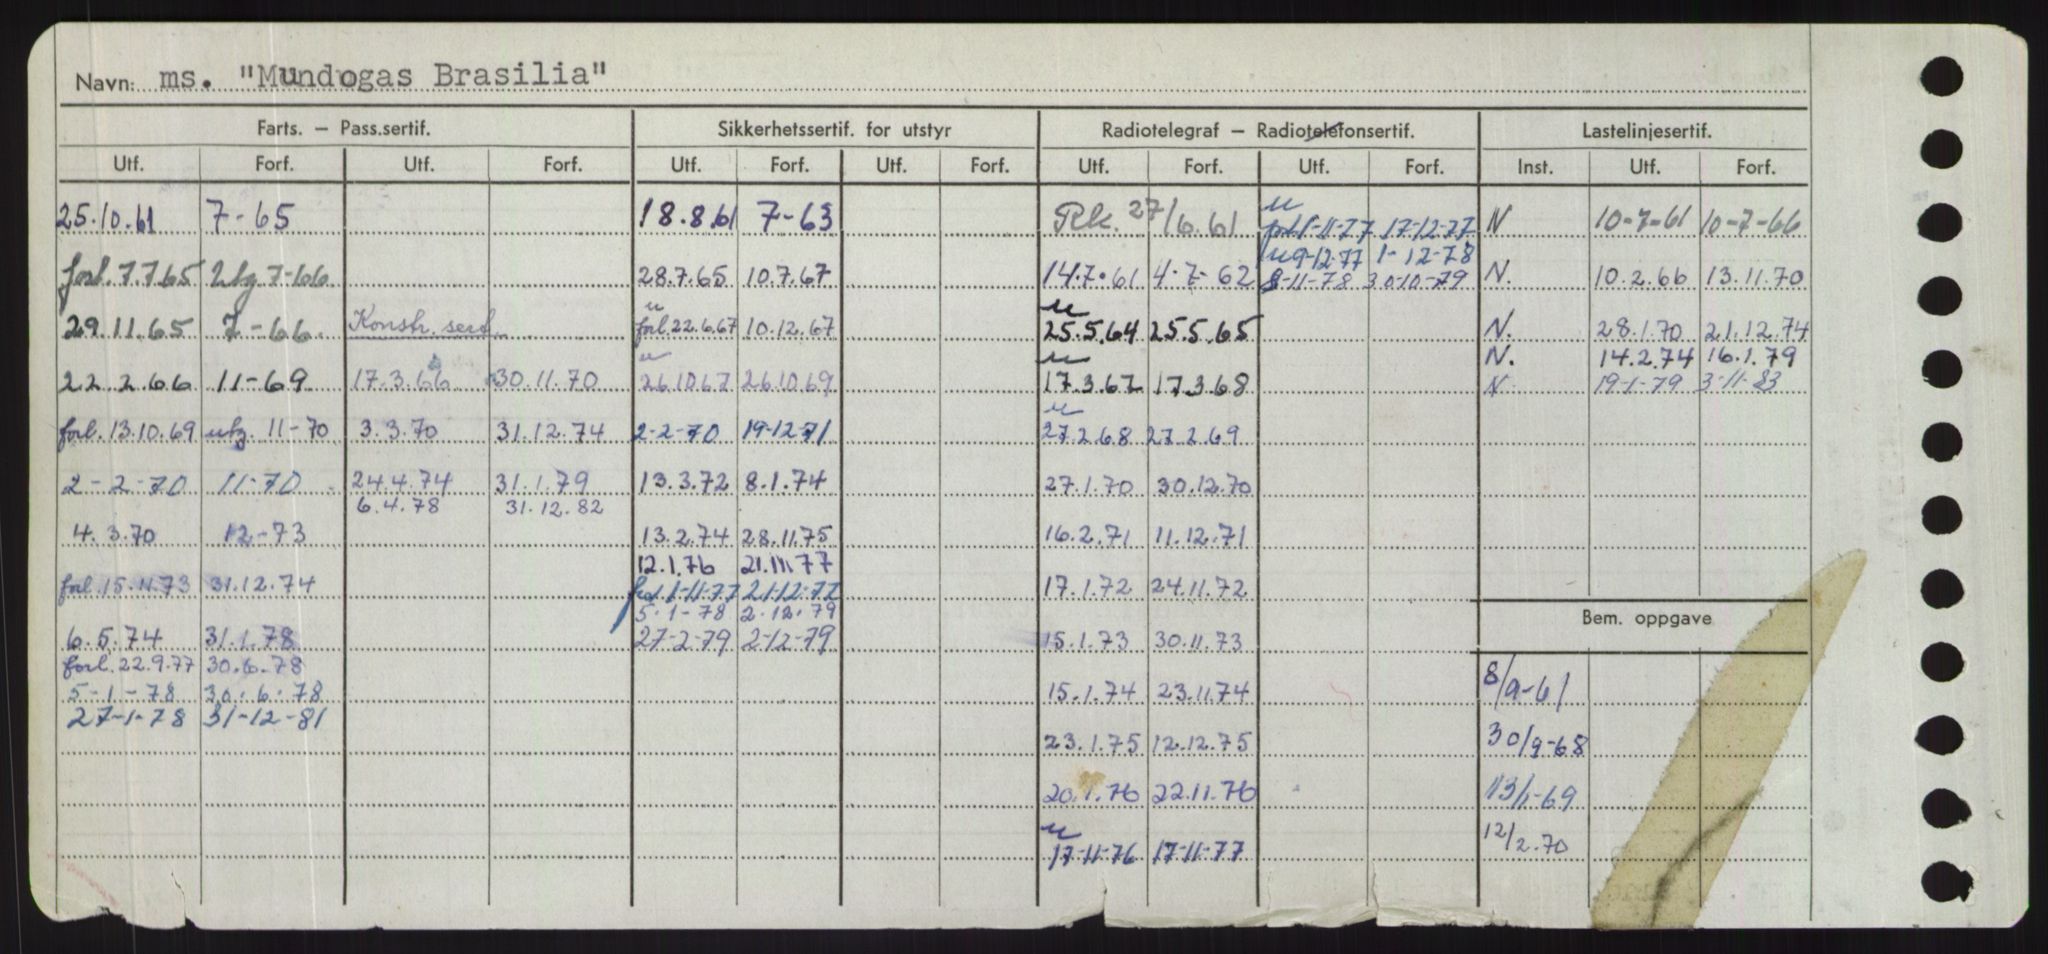 Navn: ms. "Mundogas Brasilia"
Farts. – Pass.sertif. Sikkerhetssertif. for utstyr Radiotelegraf – Radiotelefonsertif. Lastelinjesertif.
Utf. Forf. Utf. Forf. Utf. Forf. Utf. Forf. Utf. Forf. Utf. Forf. Inst. Utf. Forf.
25.10.61 7-65 18.8.61 7-63 Rk. 27/6.61 u forl. 1-11-77 17-12-77 N 10-7-61 10-7-66
u 9-12-77 1-12-78
forl. 7.7.65 utg 7-66 28.7.65 10.7.67 14.7.61 4-7-62 8-11-78 30-10-79 N. 10.2.66 13.11.70
29.11.65 7-66 Konstr. sert. u forl. 22.6.67 10.12.67 u 25.5.64 25.5.65 N. 28.1.70 21.12.74
N. 14.2.74 16.1.79
22.2.66 11-69 17.3.66 30.11.70 u 26.10.67 26.10.69 u 17.3.67 17.3.68 N 19-1-79 3-11-83
forl. 13.10.69 utg. 11-70 3.3.70 31.12.74 2-2-70 19-12-71 u 27.2.68 27.2.69
2-2-70 11-70 24.4.74 31.1.79 13.3.72 8.1.74 27.1.70 30.12.70
6.4.78 31.12.82
4.3.70 12-73 13.2.74 28.11.75 16.2.71 11.12.71
12.1.76 21.11.77
forl. 15.11.73 31.12.74 forl. 1-11-77 21-12-77 17.1.72 24.11.72
5-1-78 2.12.79
Bem. oppgave
6.5.74 31.1.78 27-2-79 2-12-79 15.1.73 30.11.73
forl. 22.9.77 30.6.78
5-1-78 30.6.78 15.1.74 23.11.74 8/9-61
27-1-78 31-12-81
23.1.75 12.12.75 30/9-68
20.1.76 22.11.76 13/1-69
u 17-11-76 17-11-77 12/2.70